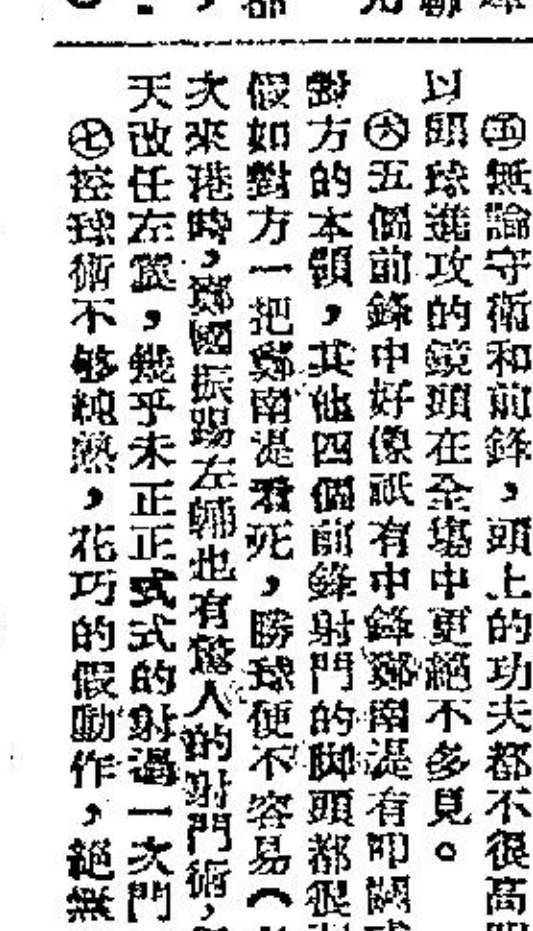 ㊄無論守衛和前鋒,頭上的功夫都不很高
以頭球進攻的鏡頭在全塲中更絕不多見。
㊅五個前鋒中好像祇有中鋒鄭南湜有叩關
對方的本領,其他四個前鋒射門的脚頭都很
假如對方一把鄭南湜看死,勝球便不容易(
次來港時,鄭國振踢左輔也有驚人的射門術,
天改任左翼,幾乎未正正式式的射過一次門
㊆控球術不够純熟,花巧的假動作,絕無